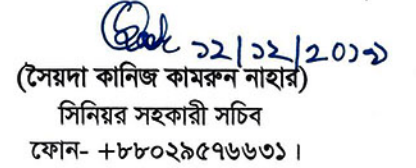 ১২/১২/২০১৯
(সৈয়দা কানিজ কামরুন নাহার)
সিনিয়র সহকারী সচিব
ফোন- +৮৮০২৯৫৭৬৬৩১।